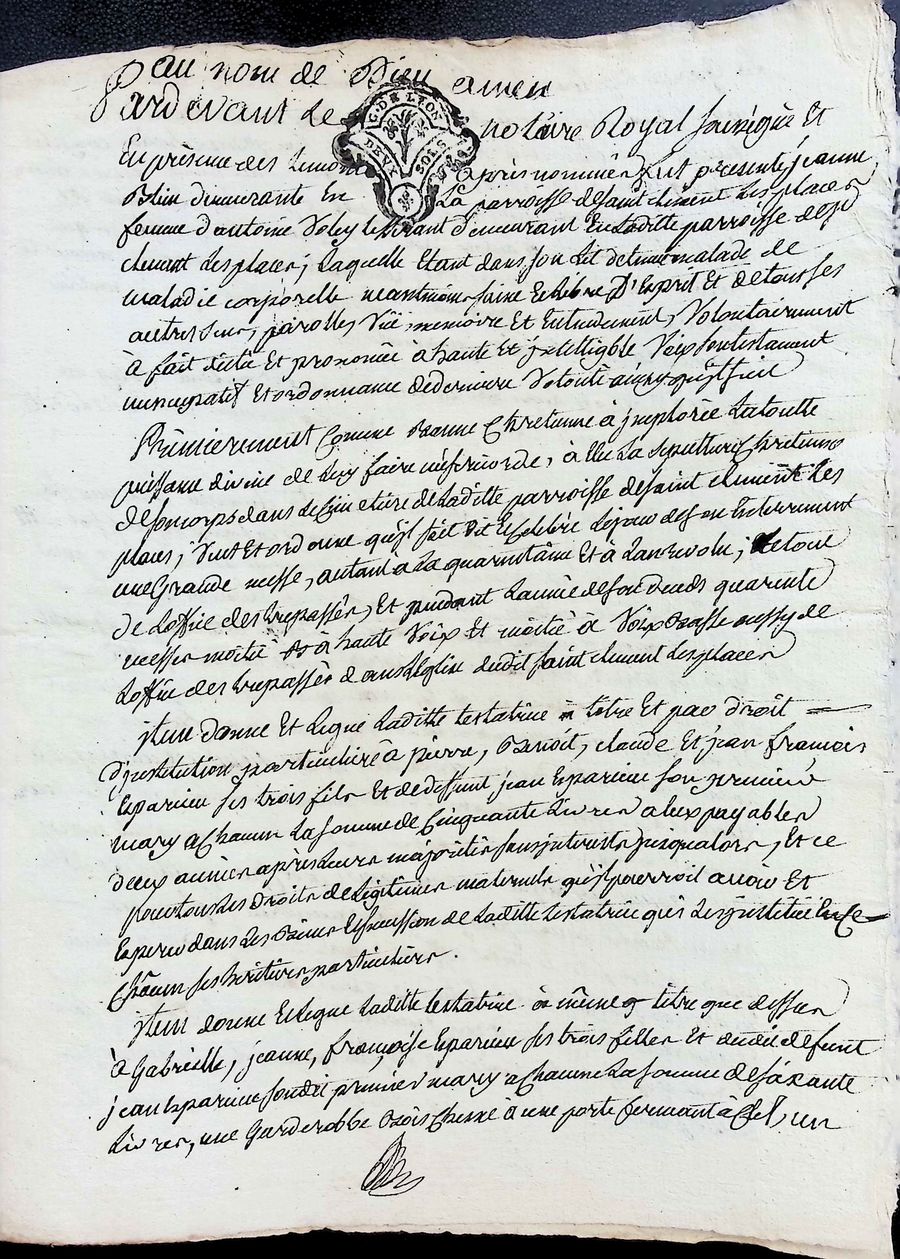 au nom de Dieu amen
Pardevant le notaire Royal sousigné Et
En présence des temoins après nommés fut presente jeanne
Blein demeurante En la parroisse de saint clement les places
femme d'antoine Voley demeurant En laditte parroisse de st
clement les places, laquelle Etant dans son lit detenue malade de
maladie corporelle neantmoins saine Et libre D'Esprit Et de tous ses
autres sens, parolles, Vüe, memoire Et Entendement, Volontairement
à fait dicté Et prononcé à haute Et jntelligible Voix son testament
nuncupatif Et ordonnance de derniere Volonté ainsy qu'il suit
Premierement Comme Bonne Chretienne à jmploréé la toutte
puissance divine de luy faire misericorde, à Elu la sepulture Chretienne
de son corps dans le Cimetiere de laditte parroisse de saint clement les
places, Veut Et ordonne qu'jl soit dit Et celebré le jour de son Enterrement
une Grande messe, autant a la quarantaine Et à l'an revolu, le tout
de l'office des trepassés, Et pendant l'année de son deceds quarente
messes moitié à haute Voix Et moitié à Voix Basse aussy de
l'office des trepassés dans l'Eglise dudit saint clement les places
jtem donne Et legue laditte testatrice à titre Et par droit
D'jnstitution particuliere à pierre, Benoit, claude Et jean françois
Esparieu ses trois fils Et de deffunt jean Esparieu son premier
mary a Chacun la somme de Cinquante livres a Eux payables
deux années après leurs majorités sans jnterests jusqu'alors, Et ce
pour tous les droits de legitimes maternels qu'jls pourroit avoir Et
Esperer dans les Biens Et succession de laditte testatrice qui les jnstitue En Ce
Chacun ses heritiers particuliers.
jtem donne Et legue laditte testatrice à même titre que dessus
à Gabrielle, jeanne, françoise Esparieu ses trois filles Et dudit defunt
jean Esparieu sondit premier mary a Chacune la somme de soixante
livres, une Garderobbe Bois Chesne à une porte fermant à Clef, un
G. DE LYON
DEUX SOLS